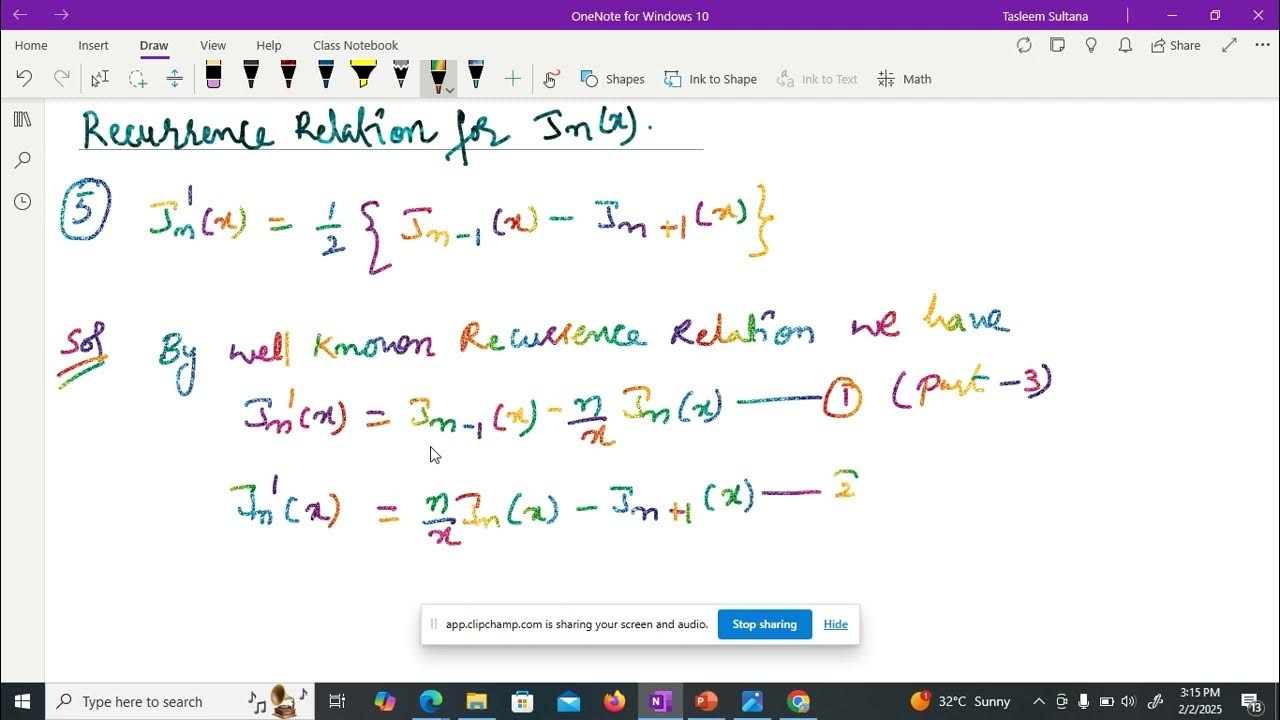 OneNote for Windows 10
Tasleem Sultana
Home Insert Draw View Help Class Notebook
Share
Shapes Ink to Shape Ink to Text Math
Recurrence Relation for Jn(x).
5 Jn'(x) = 1/2 { Jn-1(x) - Jn+1(x) }
Sol By well known Recurrence Relation we have
Jn'(x) = Jn-1(x) - n/x Jn(x) — 1 (part-3)
Jn'(x) = n/x Jn(x) - Jn+1(x) — 2
app.clipchamp.com is sharing your screen and audio. Stop sharing Hide
Type here to search
1 32°C Sunny
3:15 PM
2/2/2025
13